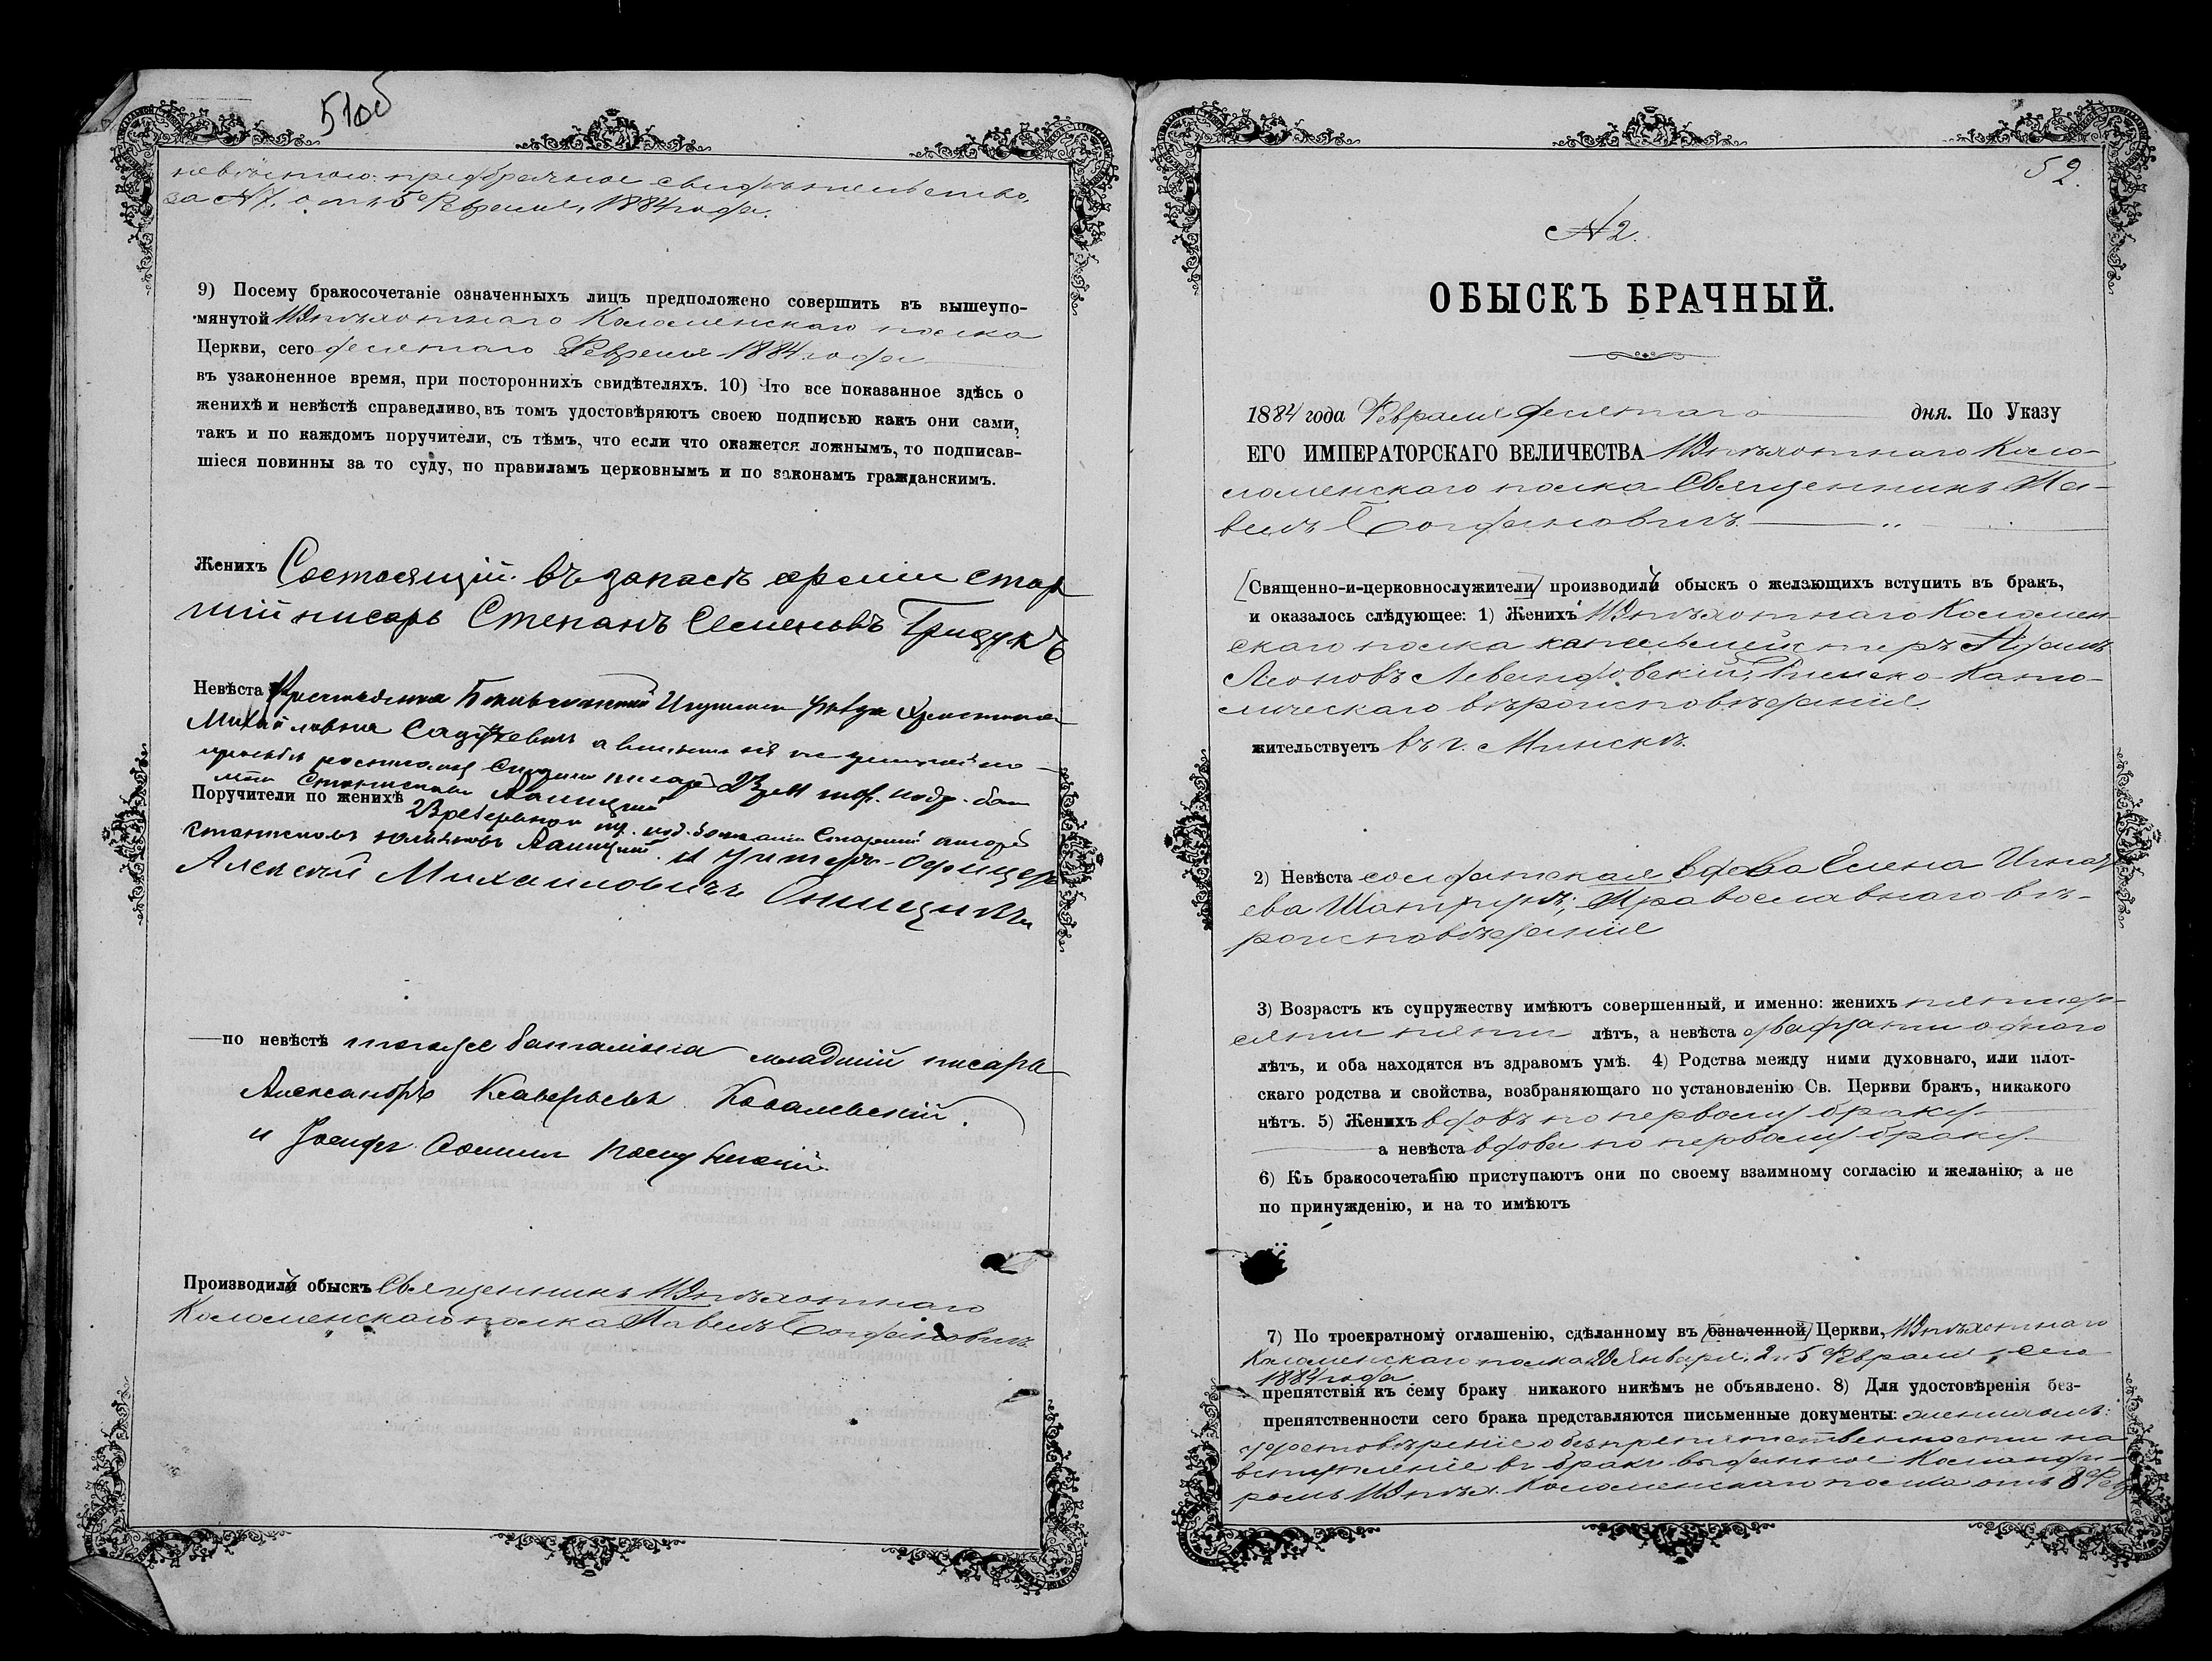 51об
невѣстою: предбрачное свидѣтельство,
за №7, отъ 5 Февраля, 1884 года.
9) Посему бракосочетаніе означенныхъ лицъ предположено совершить въ вышеупо-
мянутой Пѣхотнаго Коломенскаго полка
Церкви, сего десятаго Февраля 1884 года
въ узаконенное время, при постороннихъ свидѣтеляхъ. 10) Что все показанное здѣсь о
женихѣ и невѣстѣ справедливо, въ томъ удостовѣряютъ своею подписью какъ они сами,
такъ и по каждомъ поручители, съ тѣмъ, что если что окажется ложнымъ, то подписав-
шіеся повинны за то суду, по правиламъ церковнымъ и по законамъ гражданскимъ.
Женихъ Состоящій въ запасѣ арміи стар
шій писарь Степанъ Семеновъ Грицукъ
Невѣста Крестьянка Игуменск уѣзда
Михайловна а
Станиславъ
Поручители по женихѣ
Станиславъ Старшій писарь
и Унтеръ-Офицеръ
Алексѣй Михаиловичъ
по невѣстѣ того же баталіона младшій писарь
Александръ Ковалевскій
и Іосифъ
Производилъ обыскъ Священникъ Пѣхотнаго
Коломенскаго полка Павелъ Богдановичъ.
52.
№ 2.
ОБЫСКЪ БРАЧНЫЙ.
1884 года Февраля десятаго дня. По Указу
ЕГО ИМПЕРАТОРСКАГО ВЕЛИЧЕСТВА Пѣхотнаго Коло-
ломенскаго полка Священникъ Па-
велъ Богдановичъ.
[Священно-и-церковнослужители] производилъ обыскъ о желающихъ вступить въ бракъ,
и оказалось слѣдующее: 1) Женихъ Пѣхотнаго Коломен-
скаго полка капельмейстеръ Адамъ
Леоновъ Левандовскій, Римско-Като-
лическаго вѣроисповѣданія.
жительствуетъ въ г. Минскѣ.
2) Невѣста солдатская вдова Елена Игнать
ева Православнаго вѣ-
роисповѣданія
3) Возрастъ къ супружеству имѣютъ совершенный, и именно: женихъ пятиде-
сяти пяти лѣтъ, а невѣста двадцати одного
лѣтъ, и оба находятся въ здравомъ умѣ. 4) Родства между ними духовнаго, или плот-
скаго родства и свойства, возбраняющаго по установленію Св. Церкви бракъ, никакого
нѣтъ. 5) Женихъ вдовъ по первому браку.
а невѣста вдова по первому браку.
6) Къ бракосочетанію приступаютъ они по своему взаимному согласію и желанію, а не
по принужденію, и на то имѣютъ
7) По троекратному оглашенію, сдѣланному въ [означенной] Церкви, Пѣхотнаго
Коломенскаго полка Января, 2 и 5 Февраля, сего
1884 года
препятствія къ сему браку никакого никѣмъ не объявлено. 8) Для удостовѣренія без-
препятственности сего брака представляются письменные документы: женихомъ:
удостовѣреніе о безпрепятственности на
вступленіе въ бракъ выданное Команди-
ромъ Пѣхот. Коломенскаго полка отъ 8 Фев